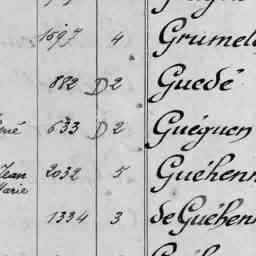 1597 4 Grumel
882 D 2 Guedé
né 633 D 2 Guéguen
Jean Marie 2032 5 Guéhenn
1334 3 de Guéhenn